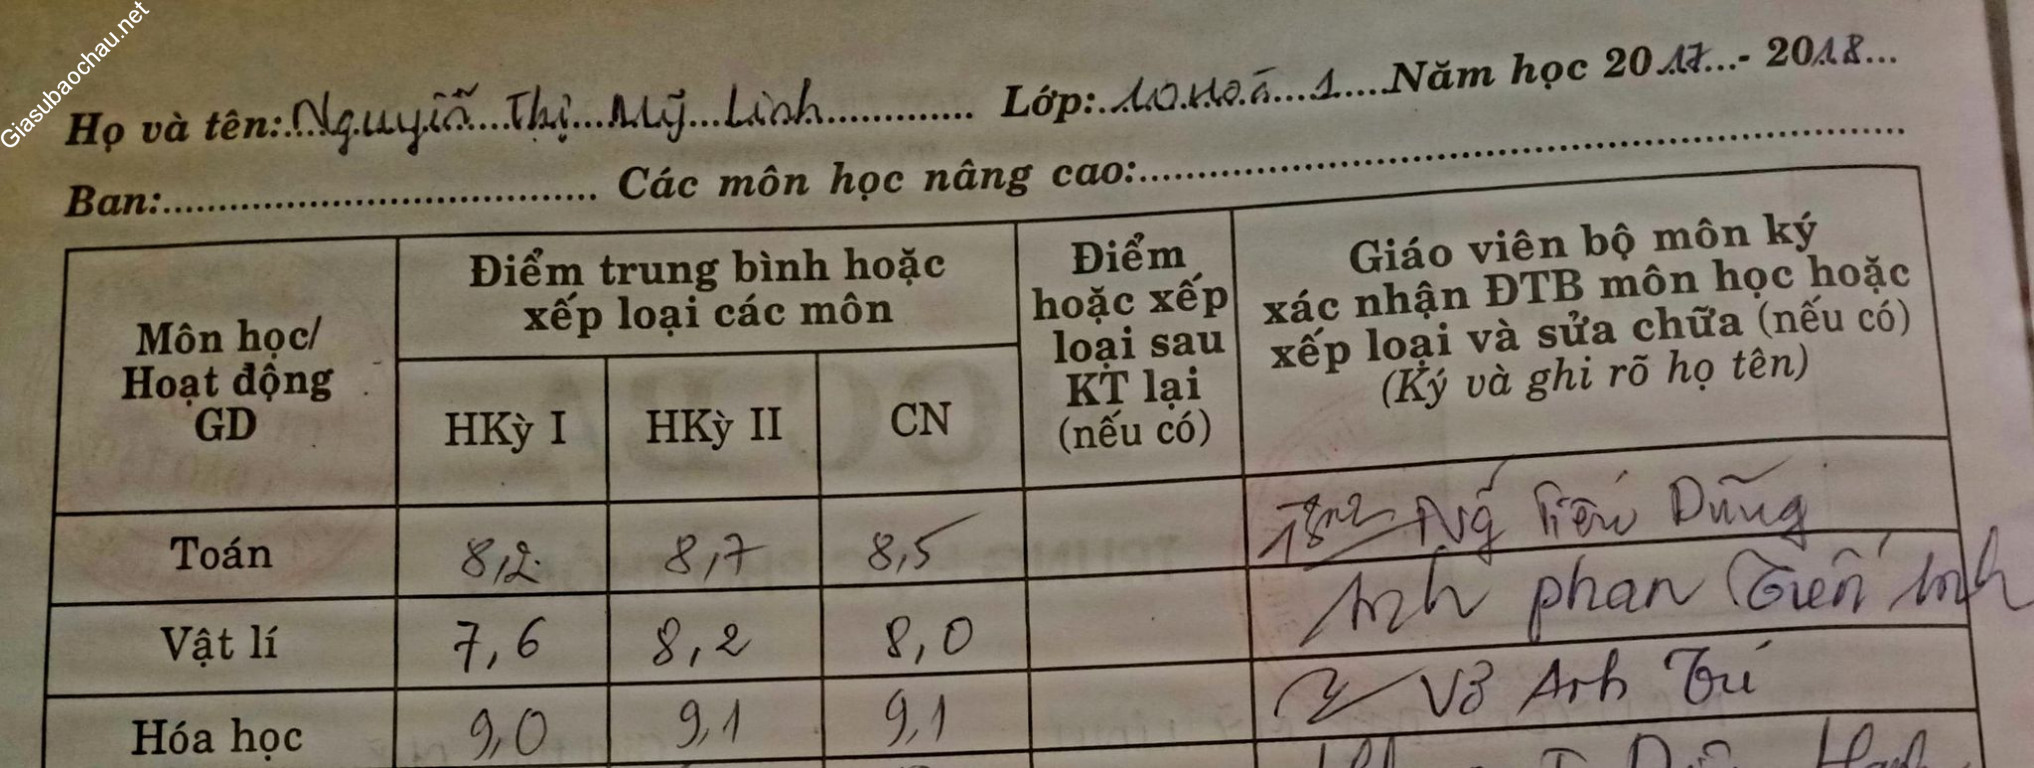 Giasubaochau.net
Họ và tên: Nguyễn Thị Mỹ Linh Lớp: 10 Hoá 1 Năm học 2017 - 2018
Ban: Các môn học nâng cao:
Môn học/
Hoạt động
GD
Điểm trung bình hoặc
xếp loại các môn
HKỳ I HKỳ II CN
Điểm
hoặc xếp
loại sau
KT lại
(nếu có)
Giáo viên bộ môn ký
xác nhận ĐTB môn học hoặc
xếp loại và sửa chữa (nếu có)
(Ký và ghi rõ họ tên)
Toán 8,2 8,7 8,5 Dũng
Vật lí 7,6 8,2 8,0 Phan
Hóa học 9,0 9,1 9,1 Võ Anh